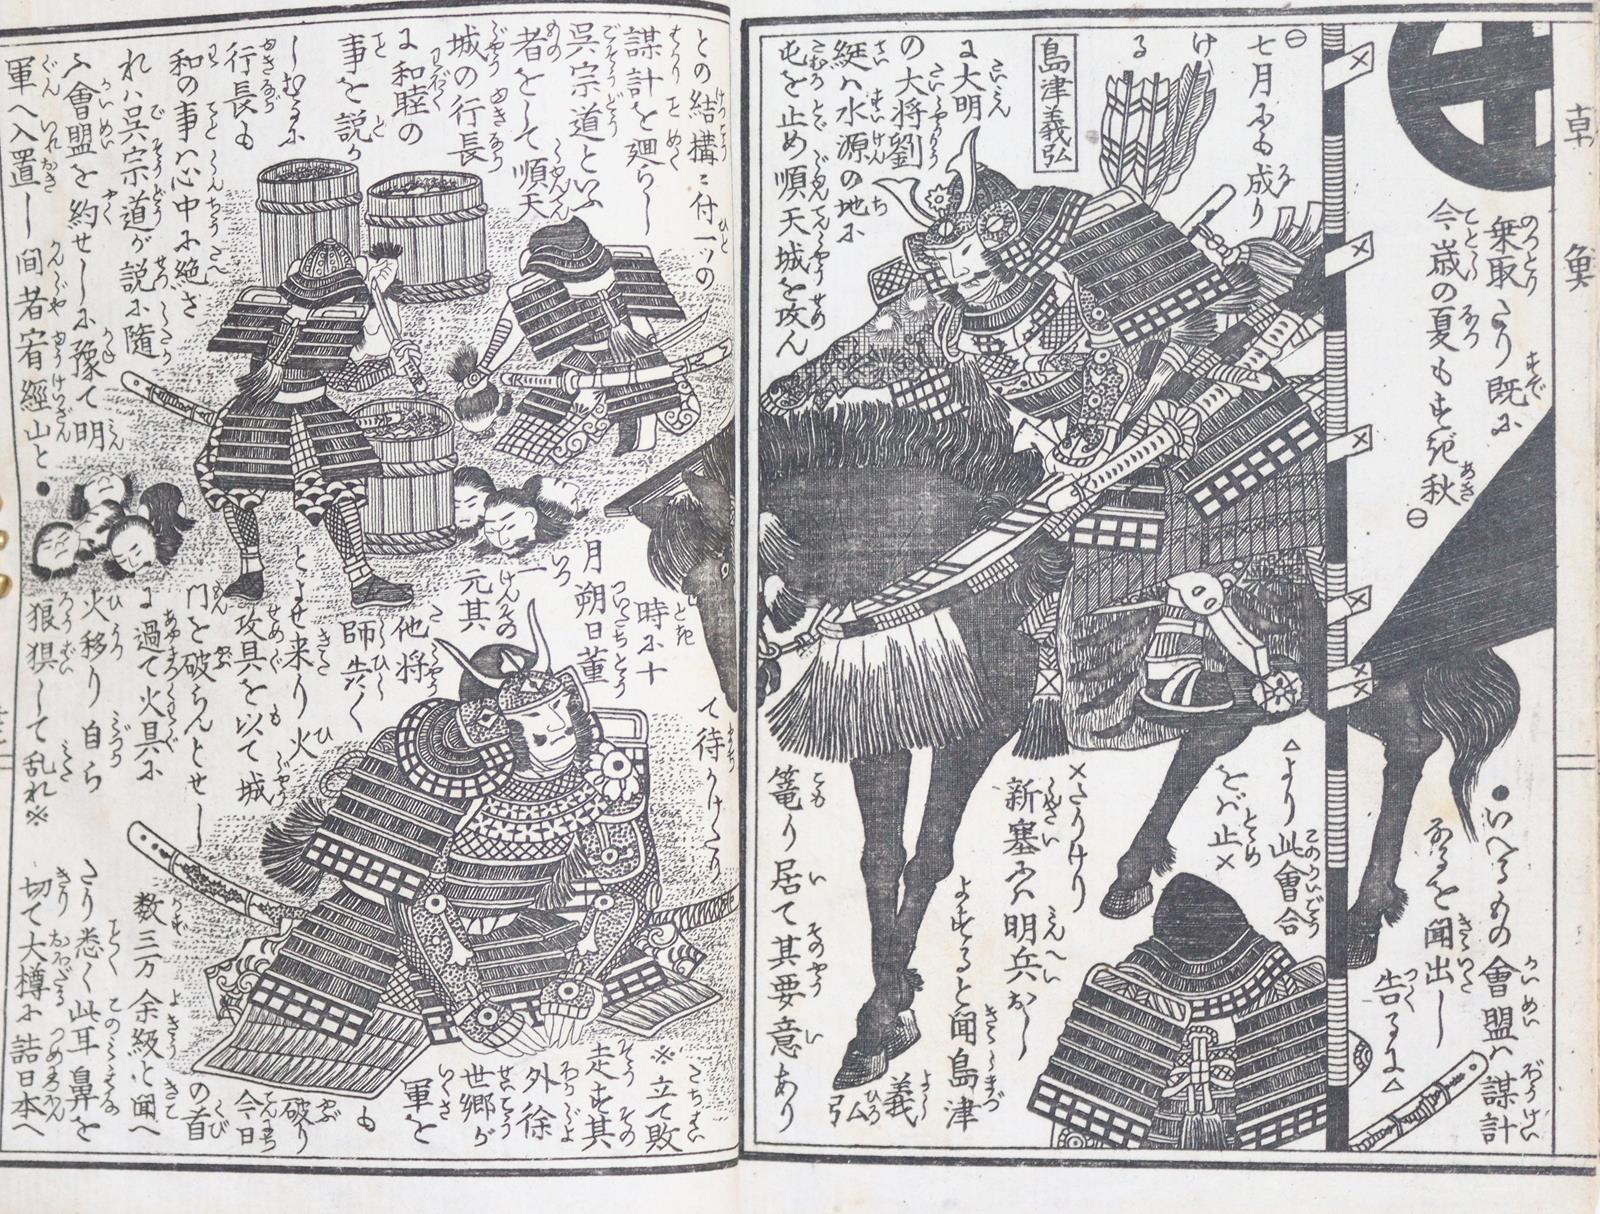 乗取たり既に
今歳の夏もすぎ秋㊀
㊀七月にも成り
ける
島津義弘
に大明
の大将劉
綎ハ水源の地に
屯を止め順天城を攻ん
●いへるもの會盟ハ謀計
なるを聞出し
告るに△
△より此會合
をバ止×
×たりけり
新塞にハ明兵おし
よすると聞島津
義弘
篭り居て其要意あり
との結構に付一ツの
謀計を廻らし
呉宗道といふ
者をして順天
城の行長
に和睦の
事を説か
しむるに
行長も
和の事ハ心中に絶ざ
れハ呉宗道が説に隨
ふ會盟を約せしに豫て明
軍へ入置し間者宥經山と●
て待かけたり
時に十
月朔日董
一元其
他将
師共く
とよせ来り火
攻具を以て城
門を破らんとせし
に過て火具に
火移り自ら
狼狽して乱れ※
※立て敗
走す其
外徐
世郷が
軍を
も
破り
今日
の首
数三万余級と聞へ
たり悉く此耳鼻を
切て大樽に詰日本へ